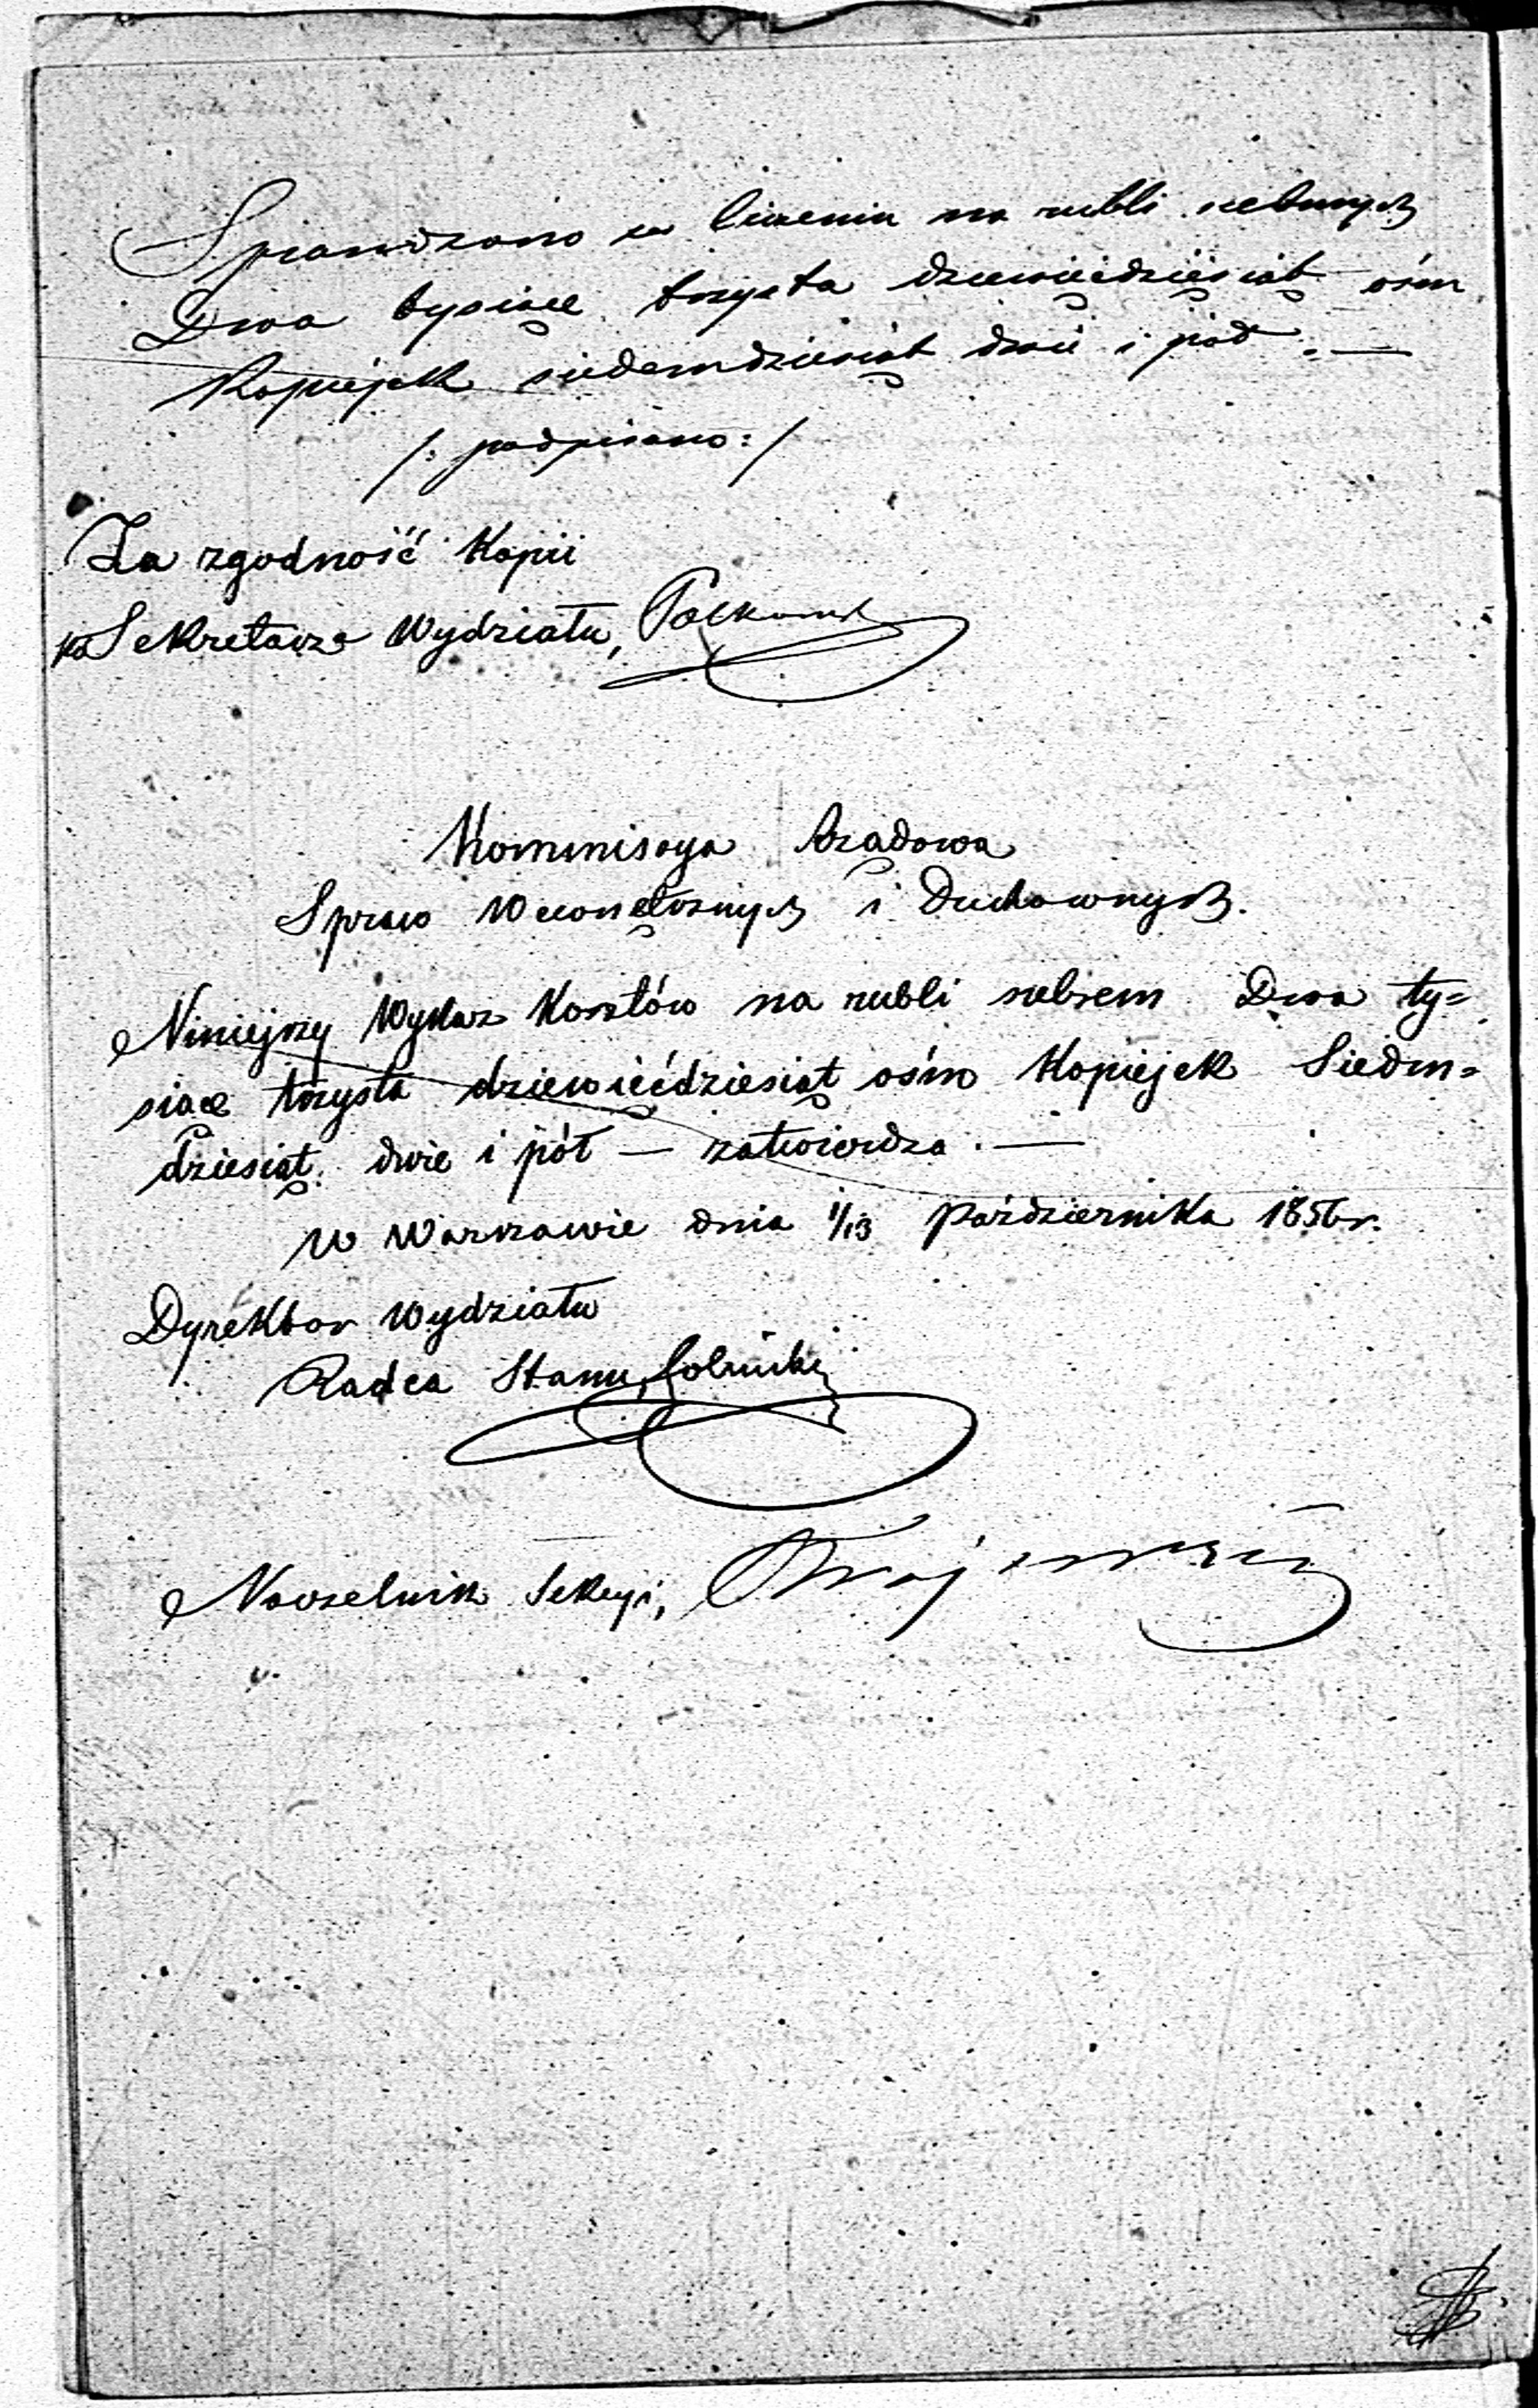 Sprawdzono w liczeniu na rubli srebrnych
Dwa tysiące trzysta dziewięćdziesiąt ośm
Kopiejek siedemdziesiąt dwie i pół. —
/: podpisano: /
Za zgodność Kopii
Sekretarz Wydziału,
Kommissya Rządowa
Spraw Wewnętrznych i Duchownych.
Niniejszy Wykaz Kosztów na rubli srebrem Dwa ty=
siące trzysta dziewięćdziesiąt ośm Kopiejek Siedm=
dziesiąt dwie i pół — zatwierdza. —
W Warszawie dnia 1/13 Października 1856 r.
Dyrektor Wydziału
Radca Stanu,
Naczelnik Sekcyi,